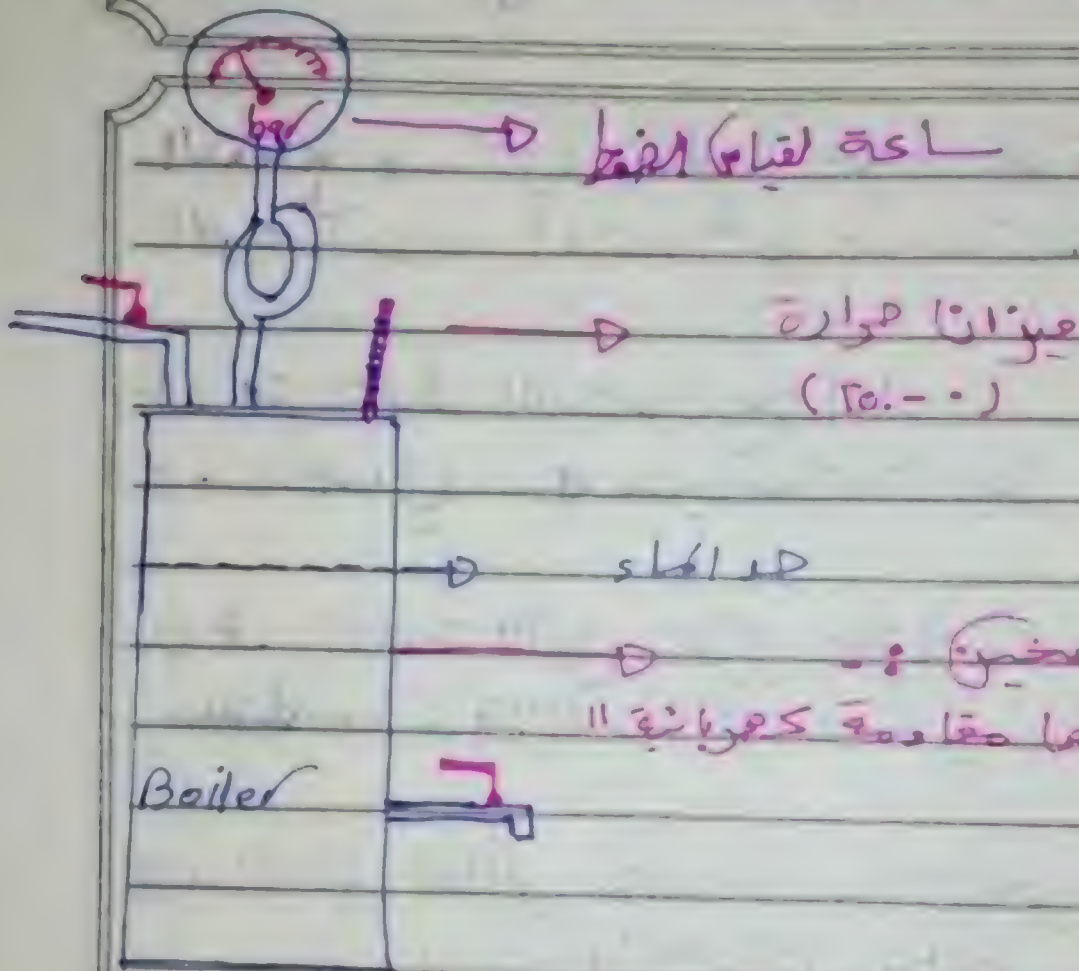 bar
ساعة لقياس الضغط
ميزان حرارة
(٢٥٠ - ٠)
حد الماء
:-
ها مقاومة كهربائية "
Boiler